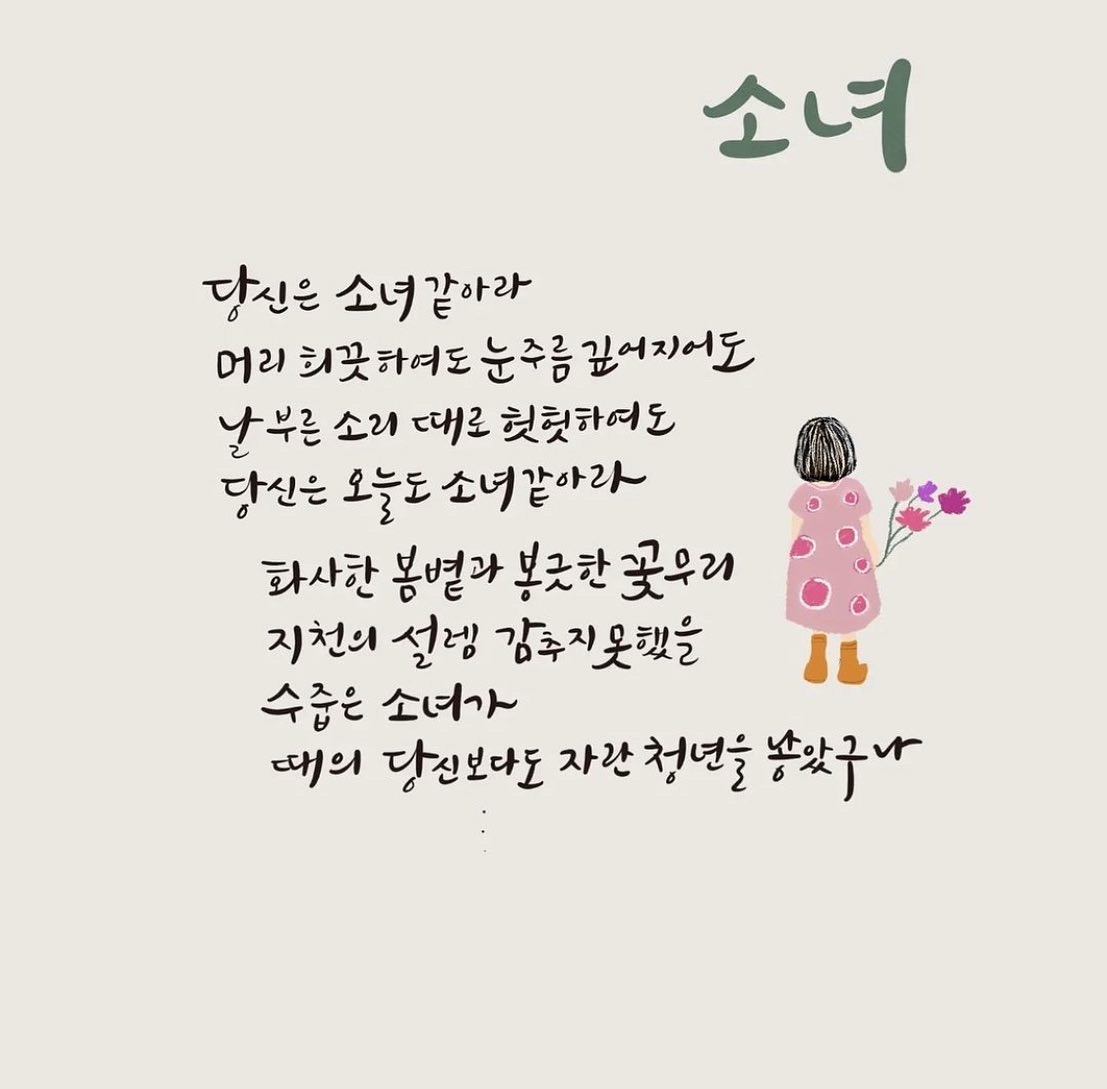 소녀
당신은 소녀같아라
머리 희끗하여도 눈주름 깊어지어도
날 부른 소리 때로 헛헛하여도
당신은 오늘도 소녀같아라
화사한 봄볕과 봉긋한 꽃무리
지천의 설렘 감추지못했을
수줍은 소녀가
때의 당신보다도 자란 청년을 낳았구나